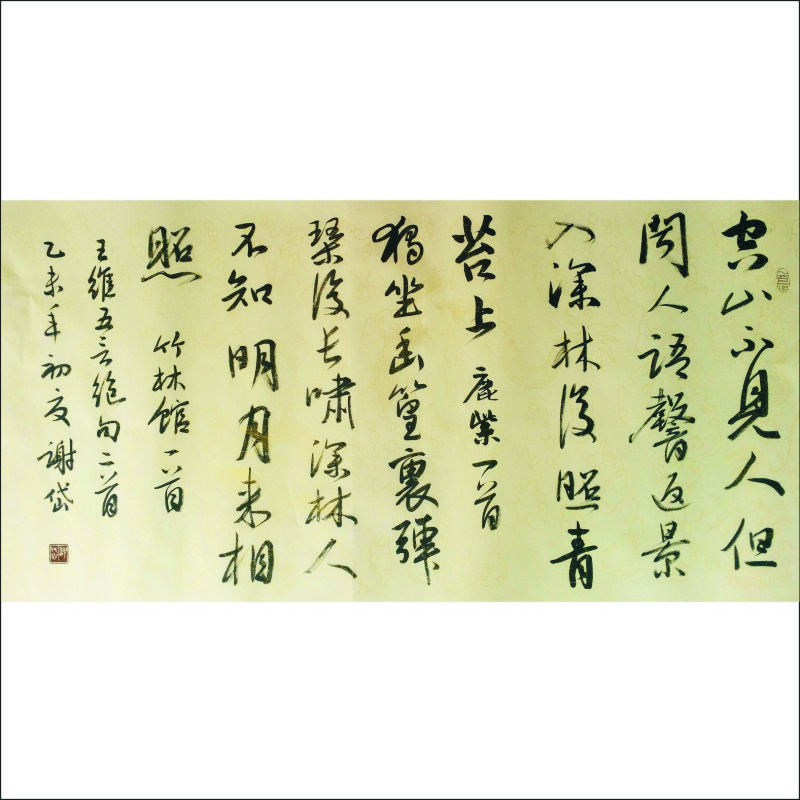 空山不見人但
聞人語聲返景
入深林復照青
苔上 鹿柴一首
獨坐幽篁裏彈
琴復长嘯深林人
不知明月来相
照 竹林館一首
王維五言絕句二首
乙未年初夏謝岱